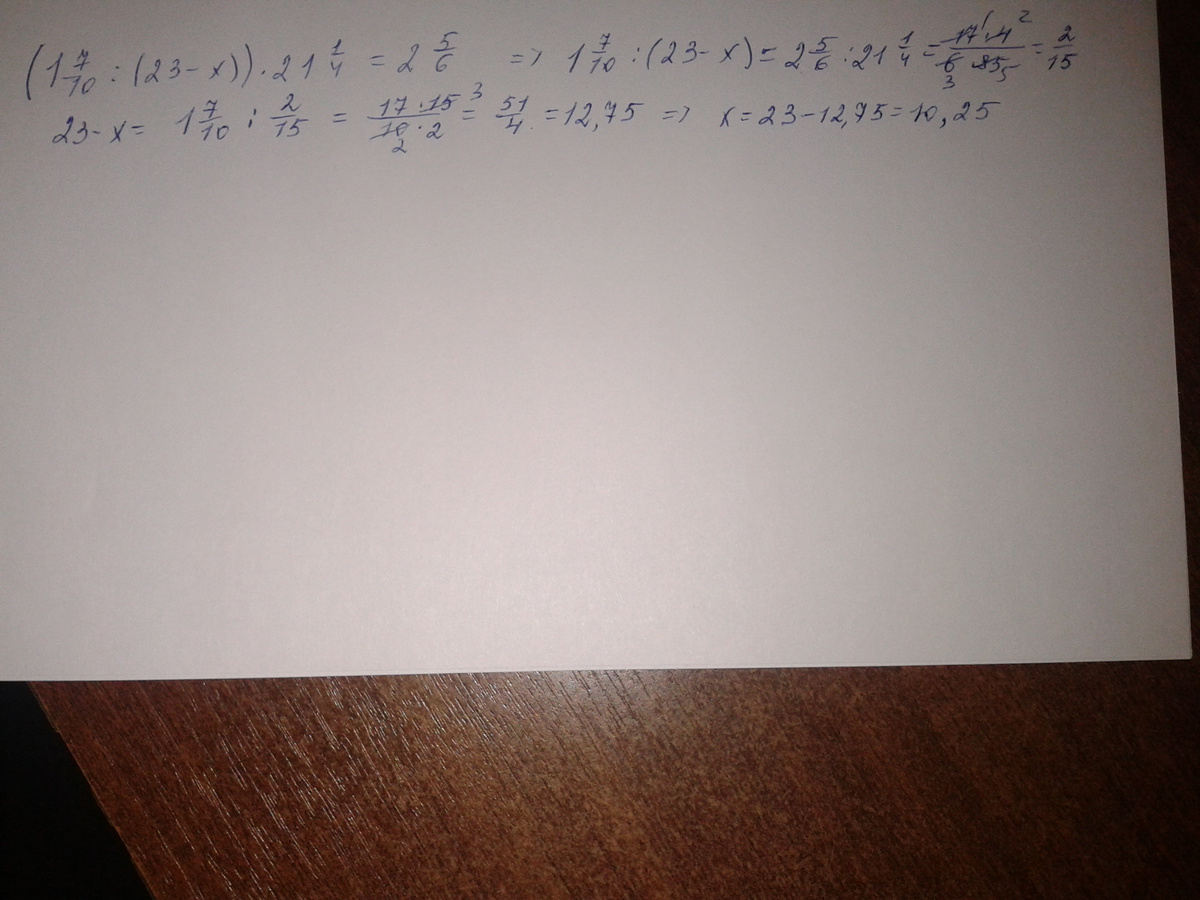 (1 7/10 : (23-x)) · 21 1/4 = 2 5/6 => 1 7/10 : (23-x) = 2 5/6 : 21 1/4 = 17 1 · 4 2 / 6 3 · 85 5 = 2/15
23-x = 1 7/10 : 2/15 = 17 · 15 3 / 10 2 · 2 = 51/4 = 12,75 => x = 23-12,75 = 10,25